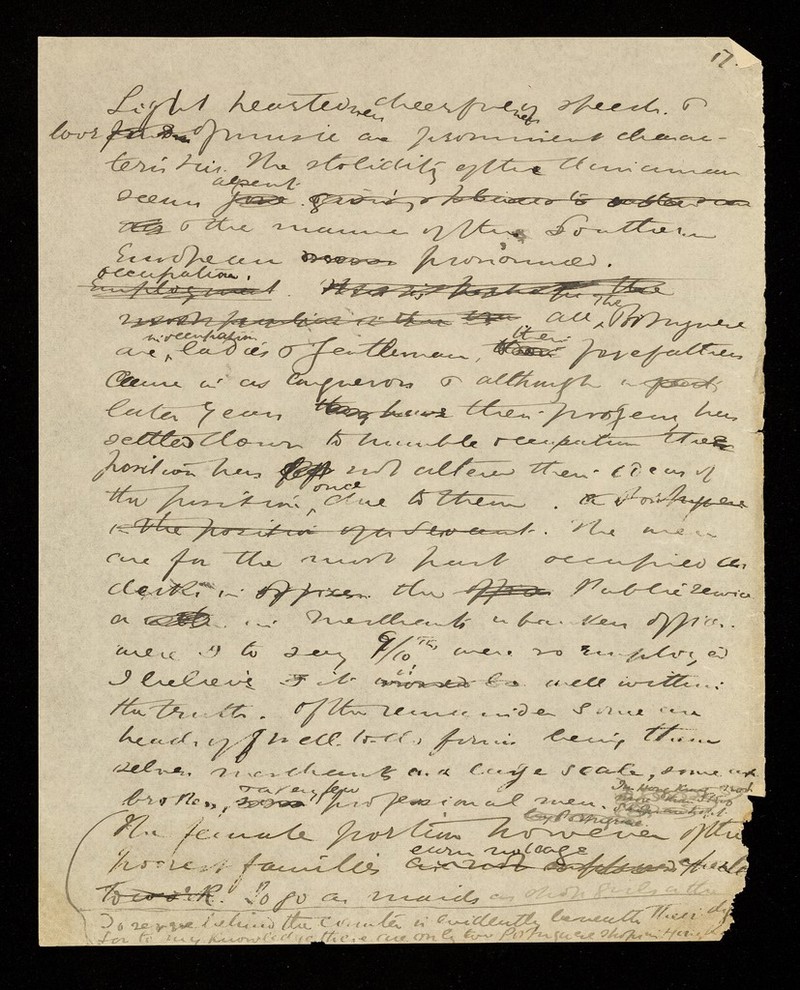 17.
Light heartedness cheerfulness of speech &
love of music are prominent charac-
teristics. The stolidity of the Chinaman
seems absent
& the manner of the Southern
European pronounced.
occupation.
employment.
all the Portuguese
are, in occupation, ladies & gentlemen, their forefathers
came in as conquerors & although in
later years they have their progeny has
settled down to humble occupation their
position has not altered their ideas of
the position once due to them. a Portuguese
in the position of a servant. The men
are for the most part occupied as
clerks in offices the Public Service
or in Merchants or bankers offices.
were I to say 9/10ths were so employed
I believe it is well within
the truth. Of the remainder some are
heads of well to do firms being them
selves merchants on a large scale, some are
brokers, & a very few professional men.
In Hong Kong
by Portuguese
The female portion however of the
poorest families earn no wage
to work. To go as maids as shop girls
To serve behind the counter is evidently beneath their
for to my knowledge there are only two Portuguese shops in Hong